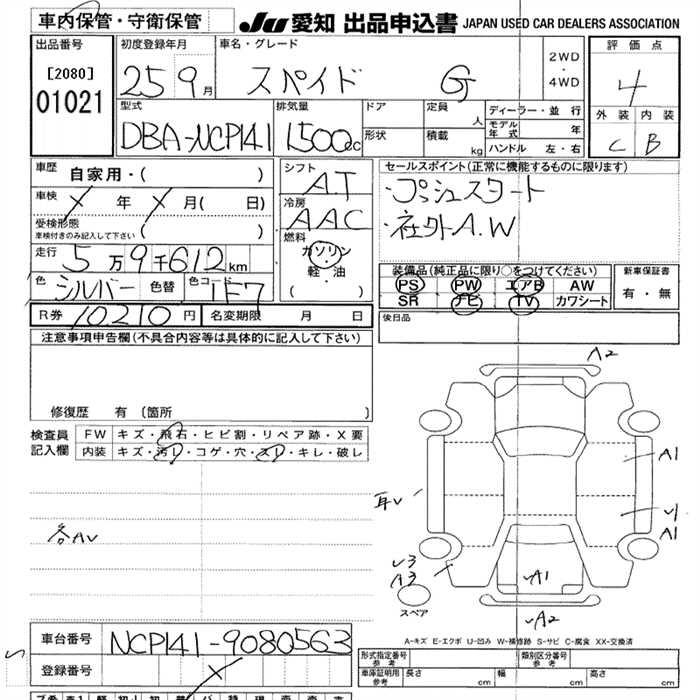 車内保管・守衛保管
JU 愛知 出品申込書 JAPAN USED CAR DEALERS ASSOCIATION
出品番号
[2080]
01021
初度登録年月
25 9月
車名・グレード
スペイド G
2WD
・
4WD
評価点
4
外装 内装
C B
型式
DBA-NCP141
排気量
1500cc
ドア
形状
定員 人
積載 kg
ディーラー・並 行
モデル年式 年
ハンドル 左・右
車歴
自家用・( )
車検 X 年 X 月( 日)
受検形態
車検付きのみ記入して下さい ( )
走行 5万9千612km
色 シルバー 色替 色コード 1F7
R券 10,210 円 名変期限 月 日
シフト
AT
冷房
AAC
燃料
ガソリン
・
軽・油
( )
セールスポイント(正常に機能するものに限ります)
・プッシュスタート
・社外A.W
装備品(純正品に限り○をつけてください)
PS PW エアB AW
SR ナビ TV カワシート
新車保証書
有・無
後日品
注意事項申告欄(不具合内容等は具体的に記入して下さい)
修復歴 有〔箇所 〕
検査員
記入欄
FW キズ・飛石・ヒビ割・リペア跡・X要
内装 キズ・汚レ・コゲ・穴・スレ・キレ・破レ
各AU
A2
A1
耳U
U
A1
U3
A3
UA1
UA2
スペア
A-キズ E-エクボ U-凹み W-補修跡 S-サビ C-腐食 XX-交換済
車台番号 NCP141-9080563
登録番号 X
形式指定番号
参考
類別区分番号
参考
車庫証明用
参考
長さ cm 幅 cm 高さ cm